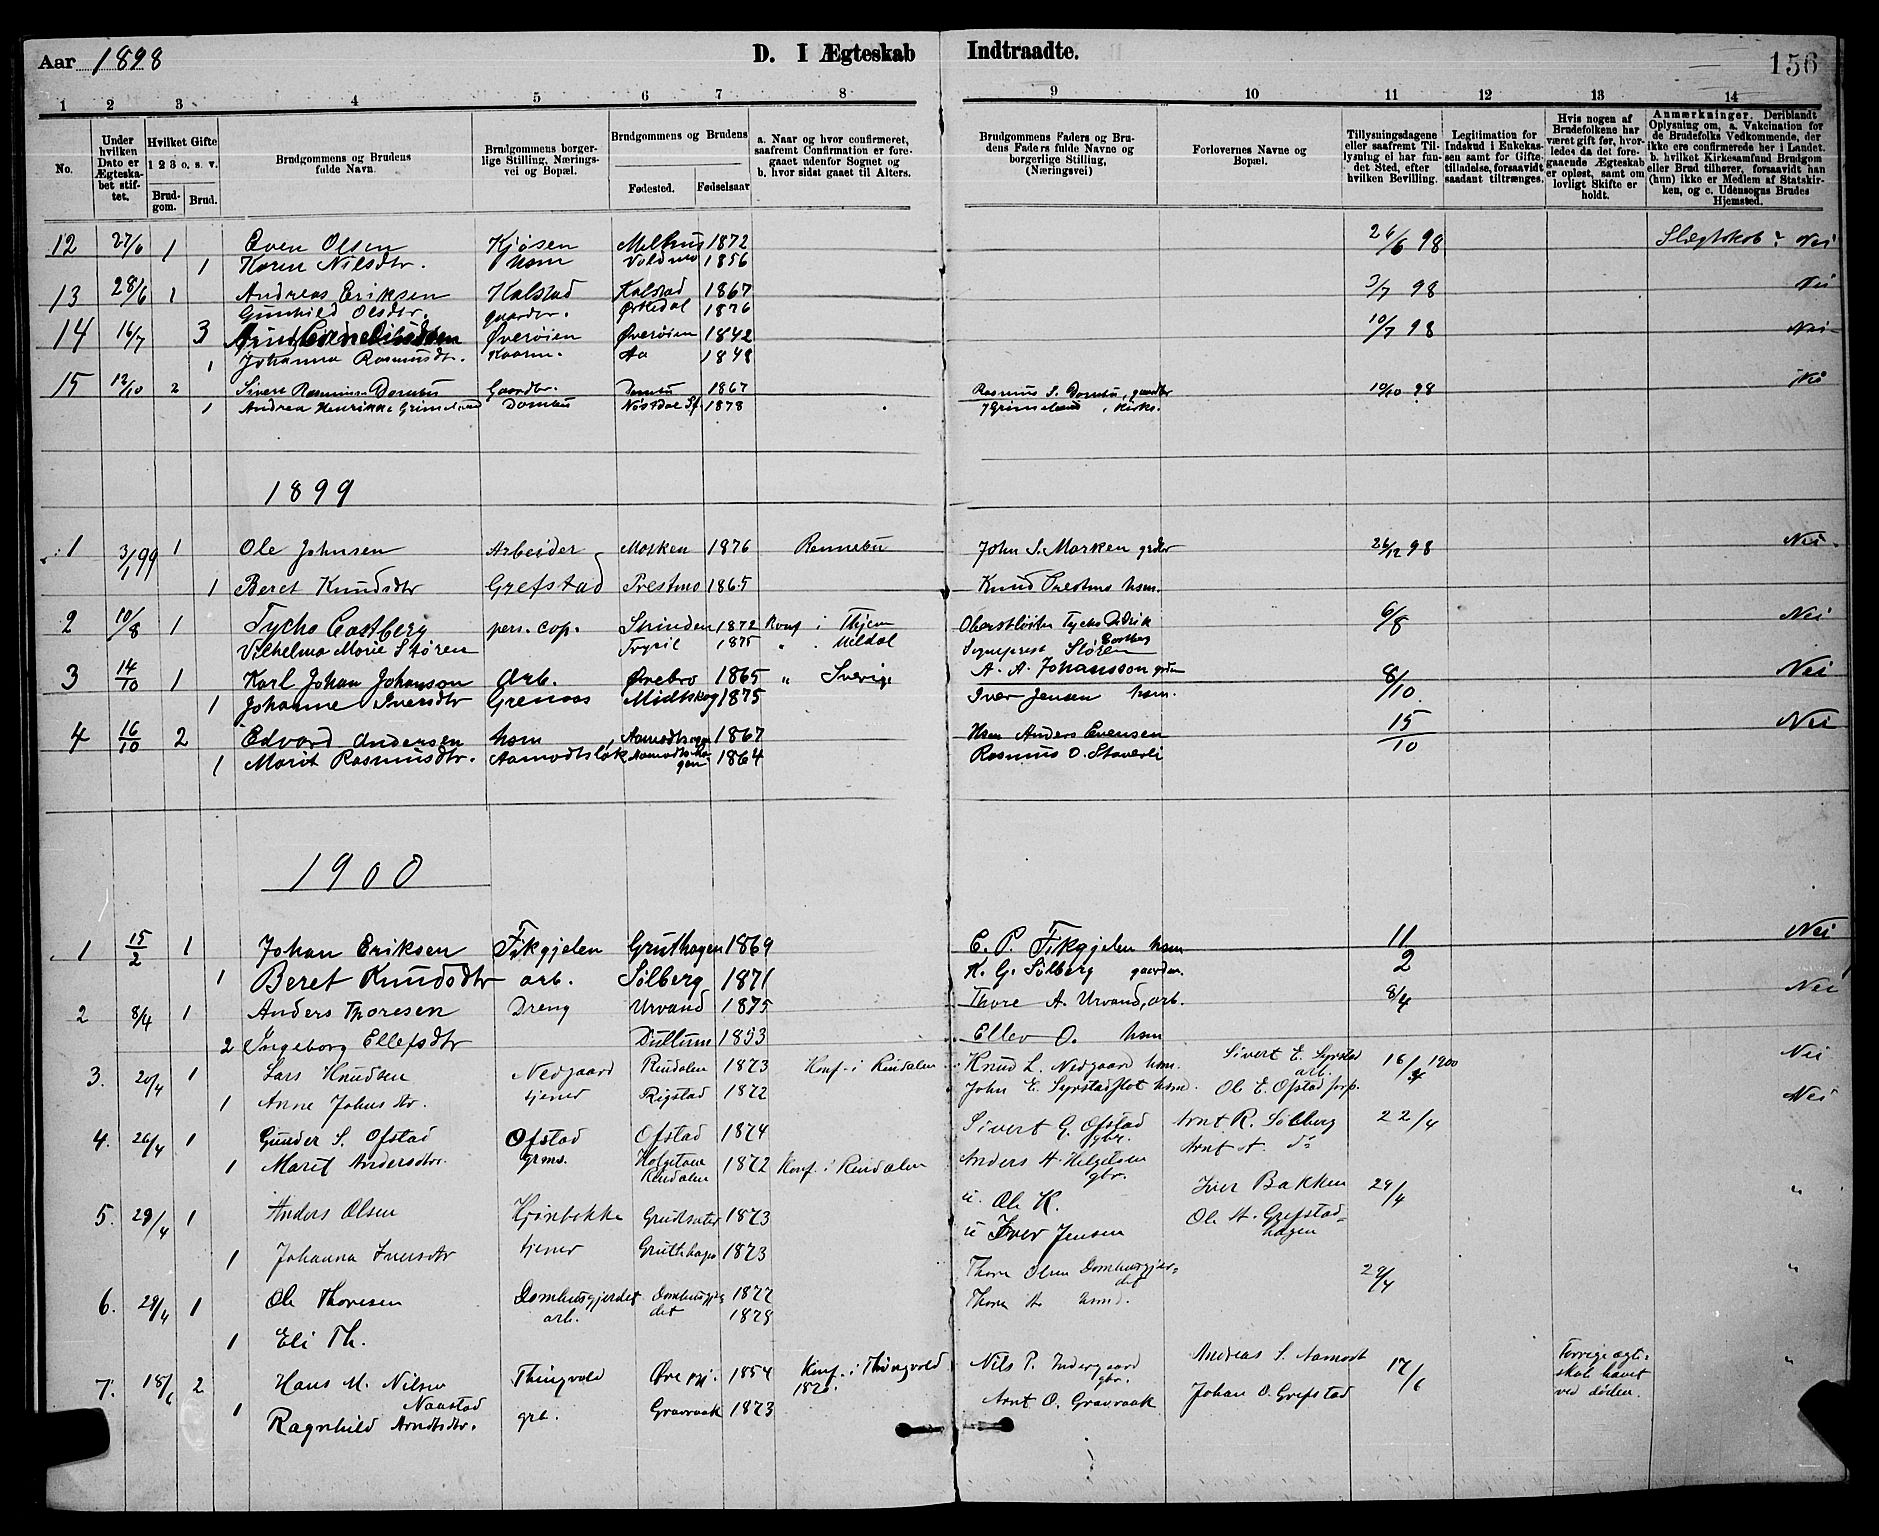 Aar 1898 D. I Ægteskab Indtraadte. 156
1 2 3 4 5 6 7 8 9 10 11 12 13 14
No.
Under hvilken Dato er Ægteskabet stiftet.
Hvilket Gifte 1 2 3 o. s. v.
Brudgom. Brud.
Brudgommens og Brudens fulde Navn.
Brudgommens borgerlige Stilling, Næringsvei og Bopæl.
Brudgommens og Brudens
Fødested. Fødselsaar
a. Naar og hvor confirmeret, saafremt Confirmation er foregaaet udenfor Sognet og b. hvor sidst gaaet til Alters.
Brudgommens Faders og Brudens Faders fulde Navne og borgerlige Stilling, (Næringsvei)
Forlovernes Navne og Bopæl.
Tillysningsdagene eller saafremt Tillysning ei har fundet Sted, efter hvilken Bevilling.
Legitimation for Indskud i Enkekassen samt for Giftetilladelse, forsaavidt saadant tiltrænges.
Hvis nogen af Brudefolkene har været gift før, hvorledes da det foregaaende Ægteskab er opløst, samt om lovligt Skifte er holdt.
Anmærkninger. Deriblandt Oplysning om, a. Vakcination for de Brudefolks Vedkommende, der ikke ere confirmerede her i Landet. b. hvilket Kirkesamfund Brudgom eller Brud tilhører, forsaavidt han (hun) ikke er Medlem af Statskirken, og c. Udensogns Brudes Hjemsted.
12 27/6 1 Even Olsen Kjøsen Melhus 1872 26/6 98 Slegtskab? Nei
1 Karen Nilsdtr. hsm Voldmo 1856
13 28/6 1 Andreas Eriksen Kalstad Kalstad 1867 3/7 98 Nei
Gunhild Olsdtr. gaardbr. Ørkedal 1876
14 16/7 3 Øverøien Øverøien 1842 10/7 98 Nei
1 Johanna Rasmusdtr. Kaarm. Aa 1848
15 12/10 2 Sivert Rasmussen Dombu Gaardbr. Dombu 1867 Rasmus S. Dombu, gaardbr 10/10 98 Nei
1 Andrea Henrikke Grimelund Dombu 1878 Grimelund, Kirks.
1899
1 3/1 99 1 Ole Johnsen Arbeider Marken 1876 Rennebu John S. Marken grdbr 26/12 98 Nei
1 Beret Knudsdtr Grefstad Prestmo 1865 Knud Prestmo hsm.
2 10/8 1 Tycho Castberg pers. cap. Strinden 1872 Konf. i Thjem Oberstløitn Tycho Didrik Castberg 6/8 Nei
Vilhelma Marie Støren Trysil 1875 " . Meldal Sogneprest Støren
3 14/10 1 Karl Johan Johanson Arb. Ørebro 1865 " Sverige A. A. Johansson grdm 8/10 Nei
1 Johanne Iversdtr Grenaas Midtskog 1875 Iver Jensen hsm.
4 16/10 2 Edvard Andersen hsm Aamodtshagen 1867 Hsm Anders Evensen 15/10 Nei
1 Marit Rasmusdtr. Aamodtsløk Aamodtshagen 1864 Rasmus O. Staverli
1900
1 15/2 1 Johan Eriksen Fikgjelen Gruthagen 1869 E. P. Fikgjelen hsm 11/2 Nei
1 Beret Knudsdtr arb. Solberg 1871 K. G. Solberg gaardm.
2 8/4 1 Anders Thoresen Dreng Urvand 1875 Thore A. Urvand, arb. 8/4 Nei
2 Ingeborg Ellefsdtr Dullum 1853 Ellev O. hsm
3. 20/4 1 Lars Knudsen Nedgaard Rindalen 1873 Konf. i Rindalen Knud L. Nedgaard hsm. Sivert E. Syrstad arb. 16/4 1900 Nei
1 Anne Johnsdtr. tjener Rigstad 1872 John E. Syrstadflot hsm. Ole E. Ofstad forp.
4. 26/4 1 Gunder S. Ofstad Ofstad Ofstad 1874 Sivert G. Ofstad gbr. Arnt R. Solberg 22/4 Nei
1 Marit Andersdtr. grms. Helgetun Rindalen 1872 Konf. i Rindalen Anders H. Helgetun gbr. Arnt A. do
5. 29/4 1 Anders Olsen Kjønbekke Grudsæter 1873 u. Ole K. Iver Bakken 29/4 "
1 Johanna Iversdtr tjener Gruthagen 1873 u Iver Jensen Ole A. Grefstadhagen
6. 29/4 1 Ole Thoresen Dombusgjerdet arb. Dombusgjerdet 1877 Thore Olsen Dombusgjerdet 29/4 "
1 Eli Th. 1879 Thore A. hsmd.
7. 18/6 2 Hans M. Nilsen Naastad Thingvold Øre prj. 1854 Konf. i Thingvold Nils P. Indergaard gbr. Andreas S. Aamodt 17/6 Forrige ægteskab hævet ved døden. "
1 Ragnhild Arndtsdtr. grb. Gravraak 1873 Arnt O. Gravraak Johan O. Grefstad